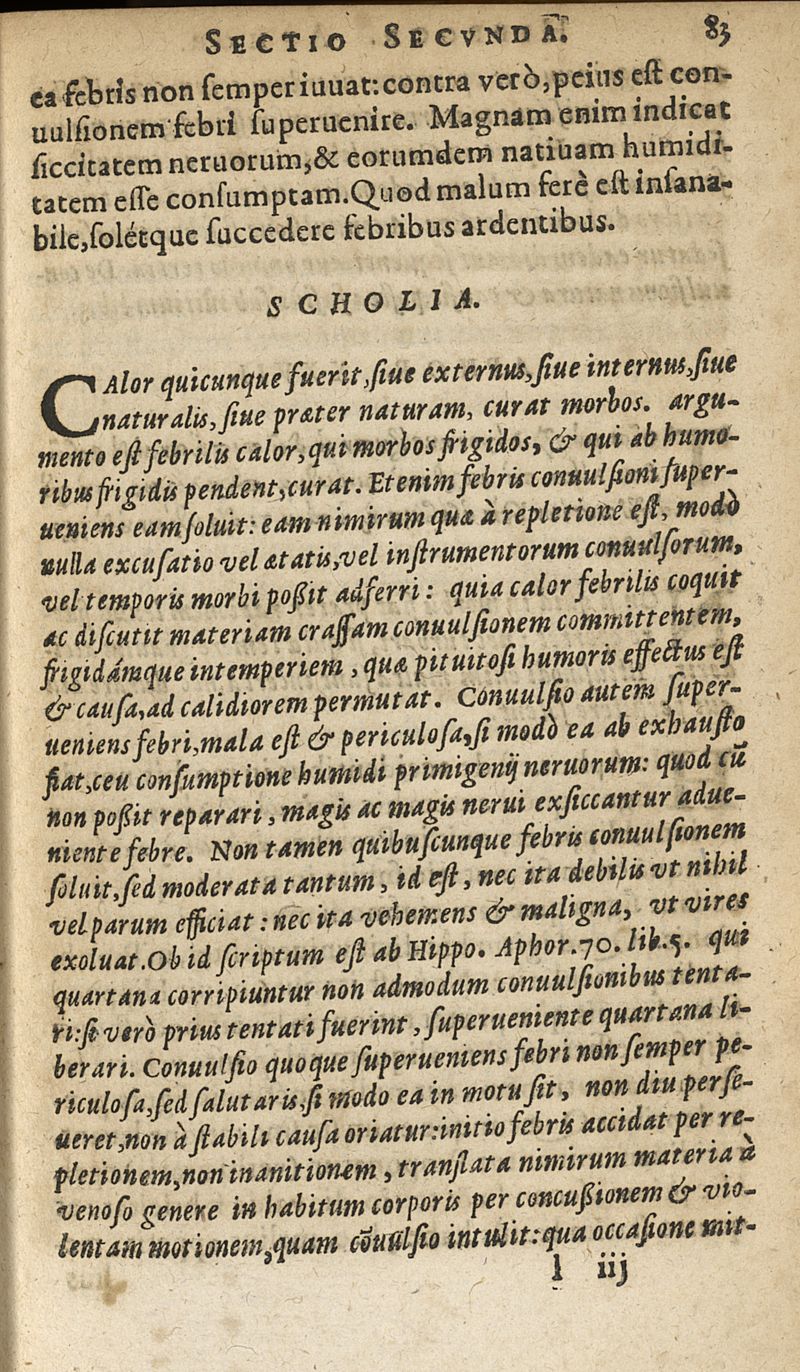 SECTIO SECVNDA. 83
ea febris non ſemper iuuat: contra verò, peius eſt con-
uulſionem febri ſuperuenire. Magnam enim indicat
ſiccitatem neruorum, & eorumdem natiuam humidi-
tatem eſſe conſumptam. Quod malum ferè eſt inſana-
bile, ſolétque ſuccedere febribus ardentibus.
SCHOLIA.
CAlor quicunque fuerit, ſiue externus, ſiue internus, ſiue
naturalis, ſiue præter naturam, curat morbos. argu-
mento eſt febrilis calor, qui morbos frigidos, & qui ab humo-
ribus frigidis pendent, curat. Etenim febris conuulſioni ſuper-
ueniens eam ſoluit: eam nimirum quæ à repletione eſt, modò
nulla excuſatio vel ætatis, vel inſtrumentorum conuulſorum,
vel temporis morbi poßit adferri: quia calor febrilis coquit
ac diſcutit materiam craſſam conuulſionem committentem,
frigidámque intemperiem, quæ pituitoſi humoris effectus eſt
& cauſa, ad calidiorem permutat. Conuulſio autem ſuper-
ueniens febri, mala eſt & periculoſa, ſi modò ea ab exhauſto
fiat, ceu conſumptione humidi primigenij neruorum: quod cũ
non poßit reparari, magis ac magis nerui exſiccantur adue-
niente febre. Non tamen quibuſcunque febris conuulſionem
ſoluit, ſed moderata tantum, id eſt, nec ita debilis vt nihil
vel parum efficiat: nec ita vehemens & maligna, vt vires
exoluat. Ob id ſcriptum eſt ab Hippo. Aphor. 70. lib. 5. qui
quartana corripiuntur non admodum conuulſionibus tenta-
ri: ſi verò prius tentati fuerint, ſuperueniente quartana li-
berari. Conuulſio quoque ſuperueniens febri non ſemper pe-
riculoſa, ſed ſalutaris, ſi modo ea in motu ſit, non diu perſe-
ueret, non à ſtabili cauſa oriatur: initio febris accidat per re-
pletionem, non inanitionem, tranſlata nimirum materia à
venoſo genere in habitum corporis per concußionem & vio-
lentam motionem, quam cõuulſio intulit: qua occaſione mit-
l iij